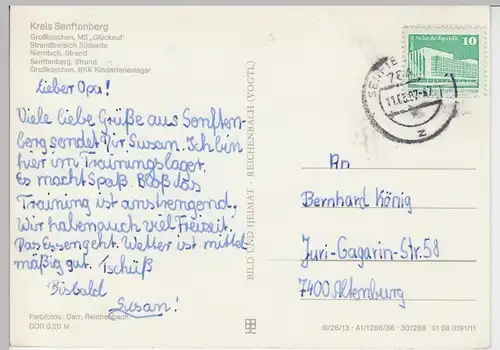 Kreis Senftenberg
Großkoschen, MS „Glückauf"
Strandbereich Südseite
Niemtsch, Strand
Senftenberg, Strand
Großkoschen, BKK Kinderferienlager
Lieber Opa!
Viele liebe Grüße aus Senften-
berg sendet Dir Susan. Ich bin
hier im Trainingslager.
Es macht Spaß. Bloß das
Training ist anstrengend.
Wir haben auch viel Freizeit.
Das Essen geht. Wetter ist mittel
mäßig gut. Tschüß
Bisbald
Susan!
Farbfotos: Darr, Reichenbach
DDR 0,20 M
BILD UND HEIMAT · REICHENBACH (VOGTL)
III/26/13 · A1/1286/86 · 301286 01 06 0191/11
10
An
Bernhard König
Juri-Gagarin-Str. 58
7400 Altenburg